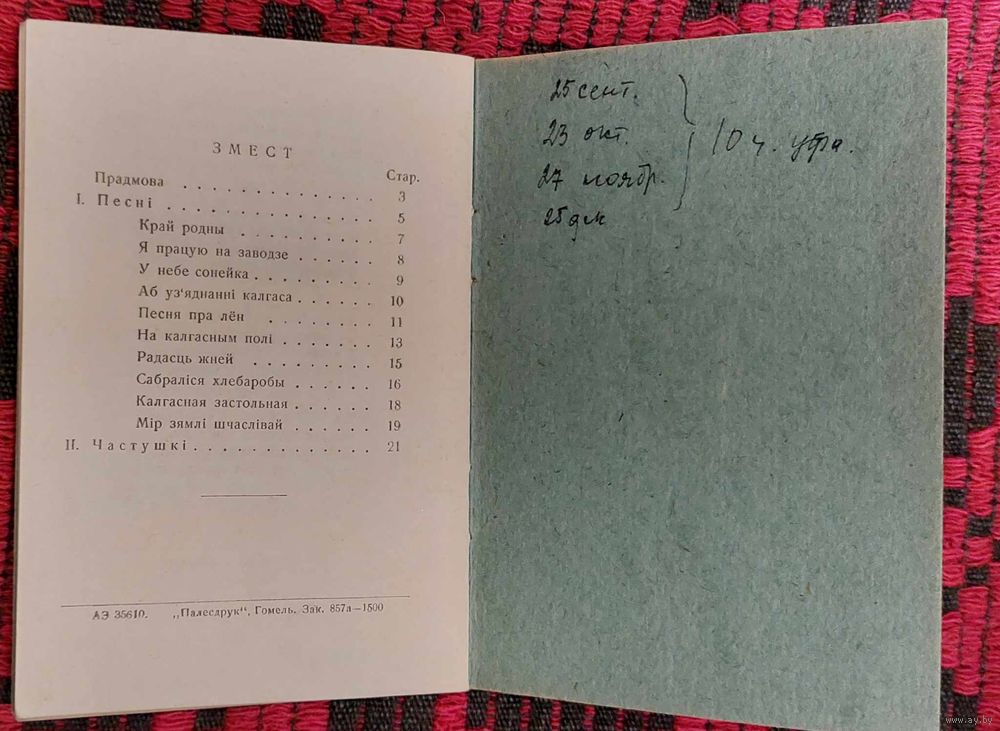 ЗМЕСТ
Стар.
Прадмова . . . . . . . . . . . . . 3
I. Песні . . . . . . . . . . . . . 5
Край родны . . . . . . . . . 7
Я працую на заводзе . . . . . . 8
У небе сонейка . . . . . . . . . 9
Аб уз'яднанні калгаса . . . . . . 10
Песня пра лён . . . . . . . . 11
На калгасным полі . . . . . . . 13
Радасць жней . . . . . . . . . 15
Сабраліся хлебаробы . . . . . . 16
Калгасная застольная . . . . . . 18
Мір зямлі шчаслівай . . . . . . 19
II. Частушкі . . . . . . . . . . . . . 21
АЭ 35610. „Палесдрук“, Гомель. Зак. 857л—1500
25 сент.
23 окт.
27 ноябр.
25 дек
10 ч. утра.
www.ay.by